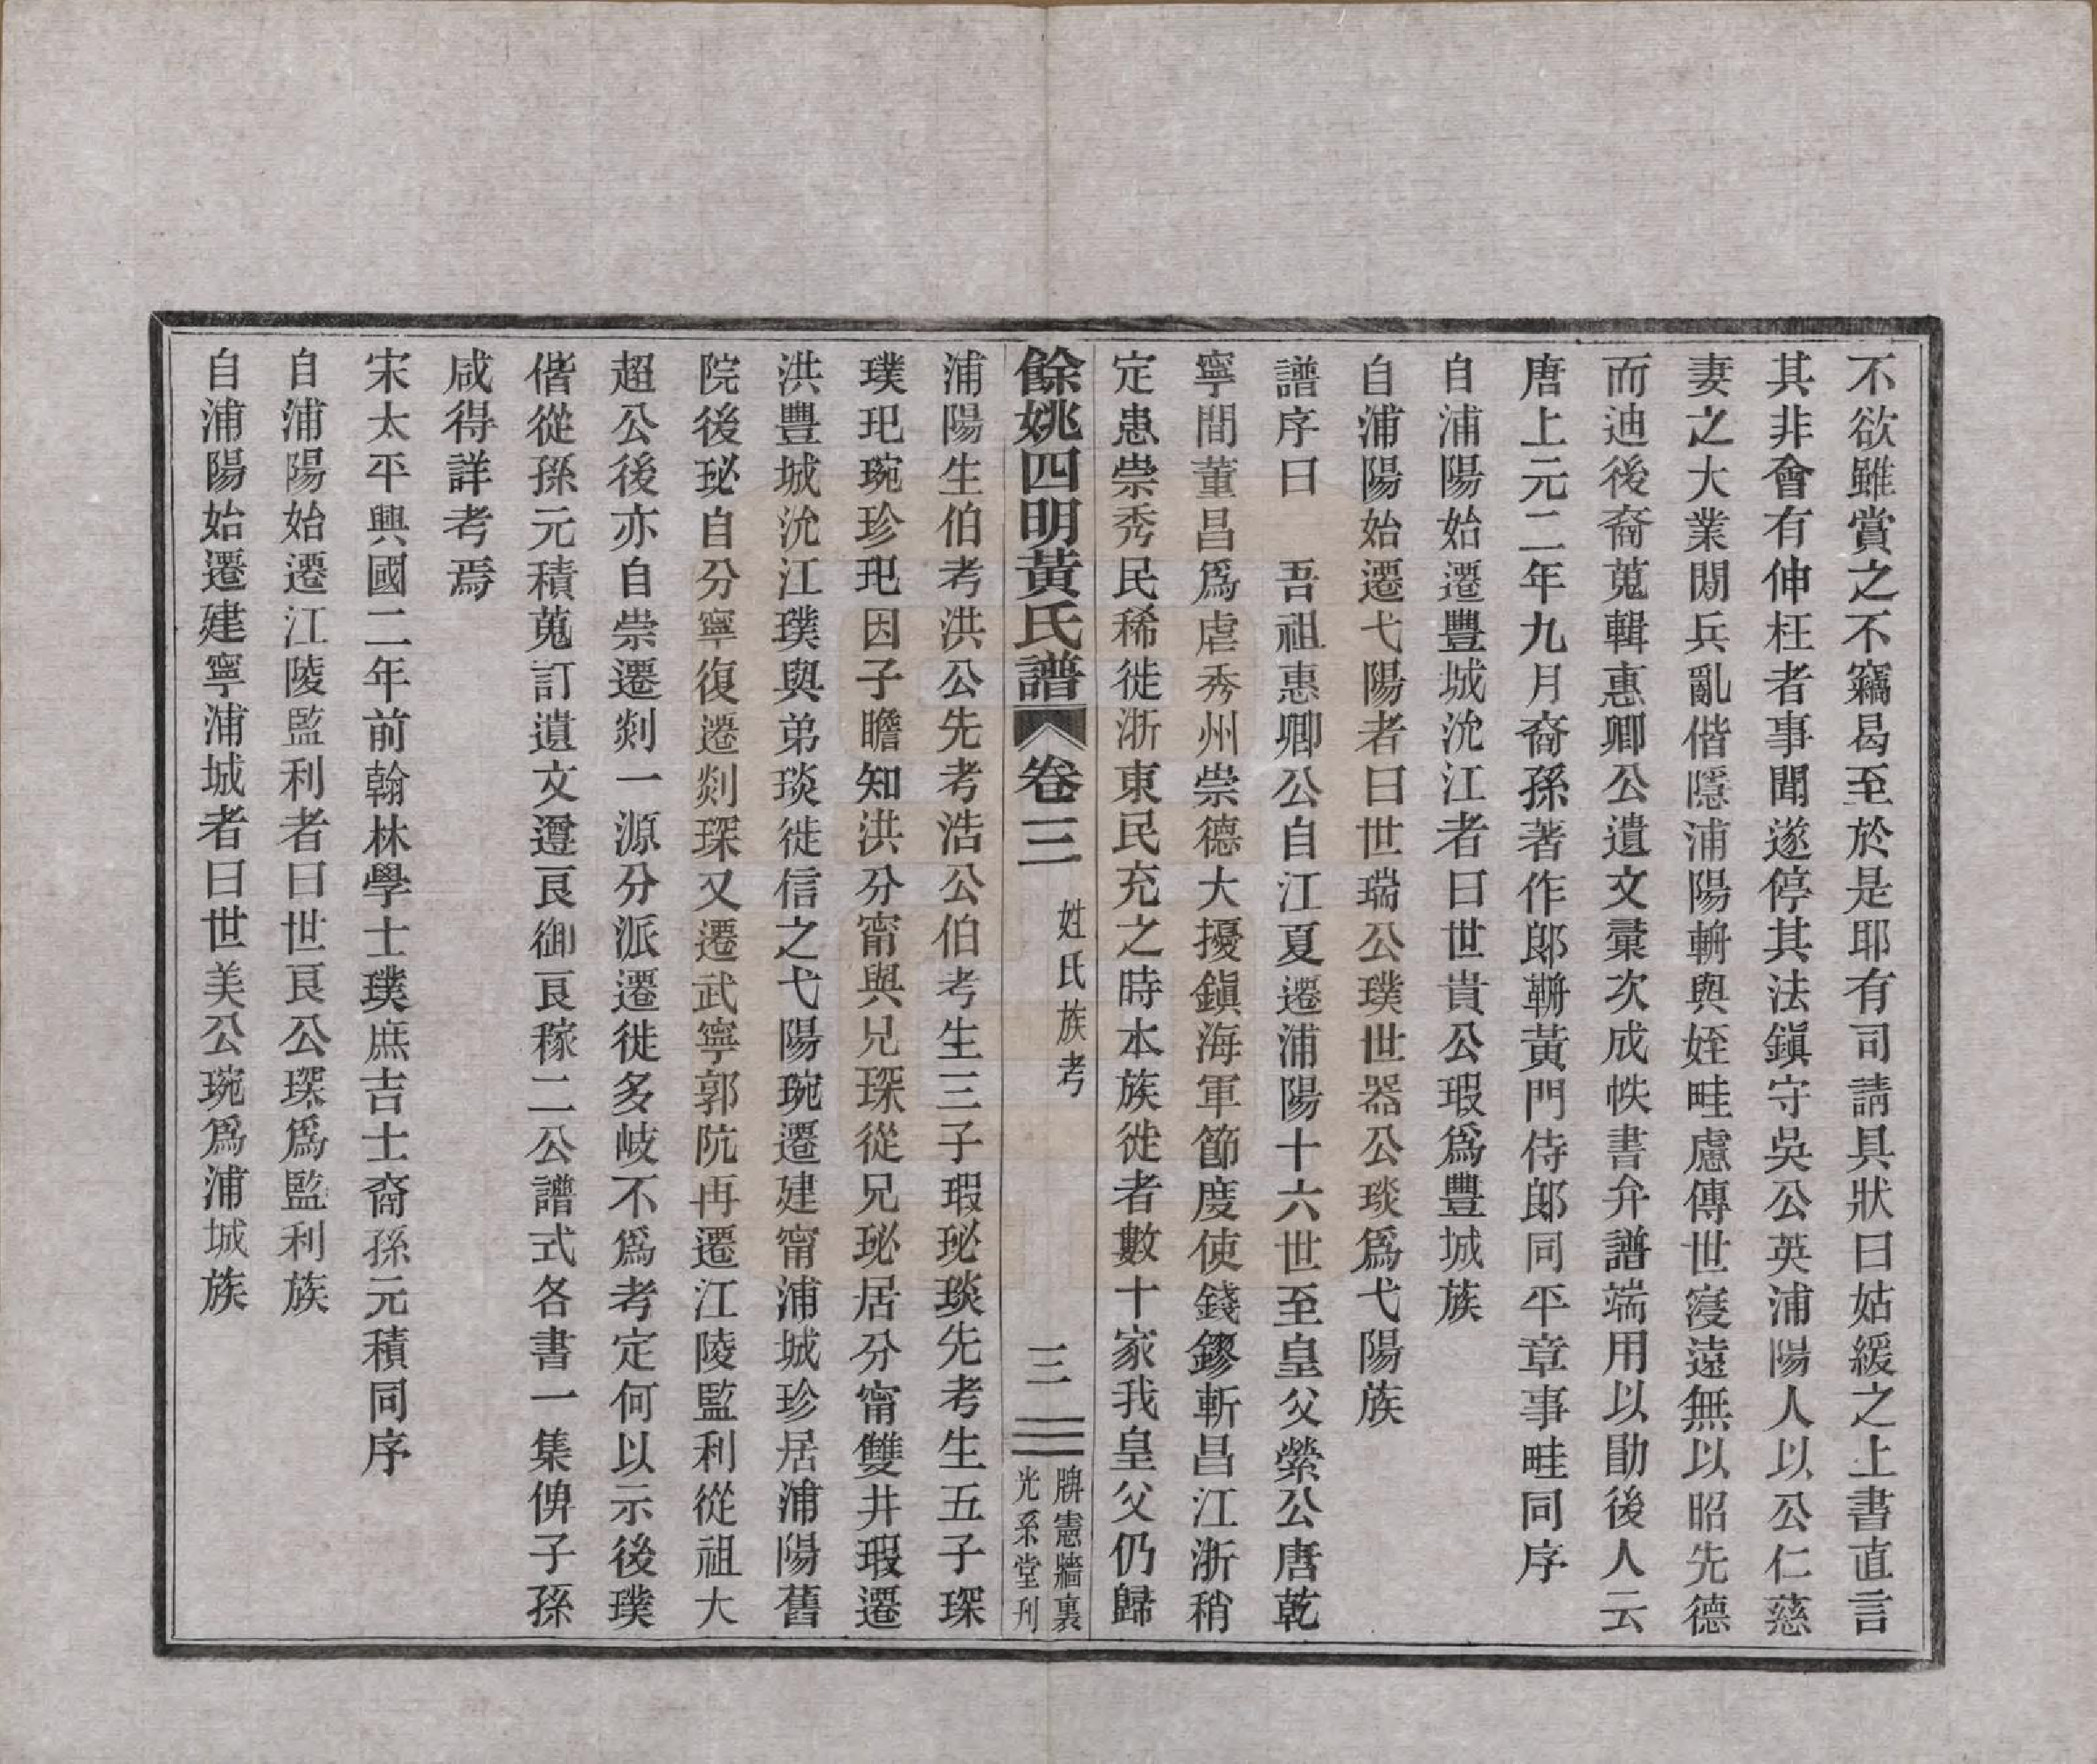 不欲雖賞之不竊曷至於是耶有司請具狀曰姑緩之上書直言
其非會有伸枉者事聞遂停其法鎭守吳公英浦陽人以公仁慈
妻之大業閒兵亂偕隱浦陽輧與姪畦慮傳世寖遠無以昭先德
而迪後裔蒐輯惠卿公遺文彚次成帙書弁譜端用以勖後人云
唐上元二年九月裔孫著作郞輧黃門侍郞同平章事畦同序
自浦陽始遷豐城沇江者曰世貴公瑕爲豐城族
自浦陽始遷弋陽者曰世瑞公璞世器公琰爲弋陽族
譜序曰　吾祖惠卿公自江夏遷浦陽十六世至皇父縈公唐乾
寧間董昌爲虐秀州崇德大擾鎭海軍節度使錢鏐斬昌江浙稍
定患崇秀民稀徙浙東民充之時本族徙者數十家我皇父仍歸
餘姚四明黃氏譜　卷三　姓氏族考　三　牌憲牆裏　光系堂刋
浦陽生伯考洪公先考浩公伯考生三子瑕珌琰先考生五子琛
璞玘琬珍玘因子瞻知洪分甯與兄琛從兄珌居分甯雙井瑕遷
洪豐城沇江璞與弟琰徙信之弋陽琬遷建甯浦城珍居浦陽舊
院後珌自分寧復遷剡琛又遷武寧郭阬再遷江陵監利從祖大
超公後亦自崇遷剡一源分派遷徙多岐不爲考定何以示後璞
偕從孫元積蒐訂遺文遵良御良稼二公譜式各書一集俾子孫
咸得詳考焉
宋太平興國二年前翰林學士璞庶吉士裔孫元積同序
自浦陽始遷江陵監利者曰世良公琛爲監利族
自浦陽始遷建寧浦城者曰世美公琬爲浦城族